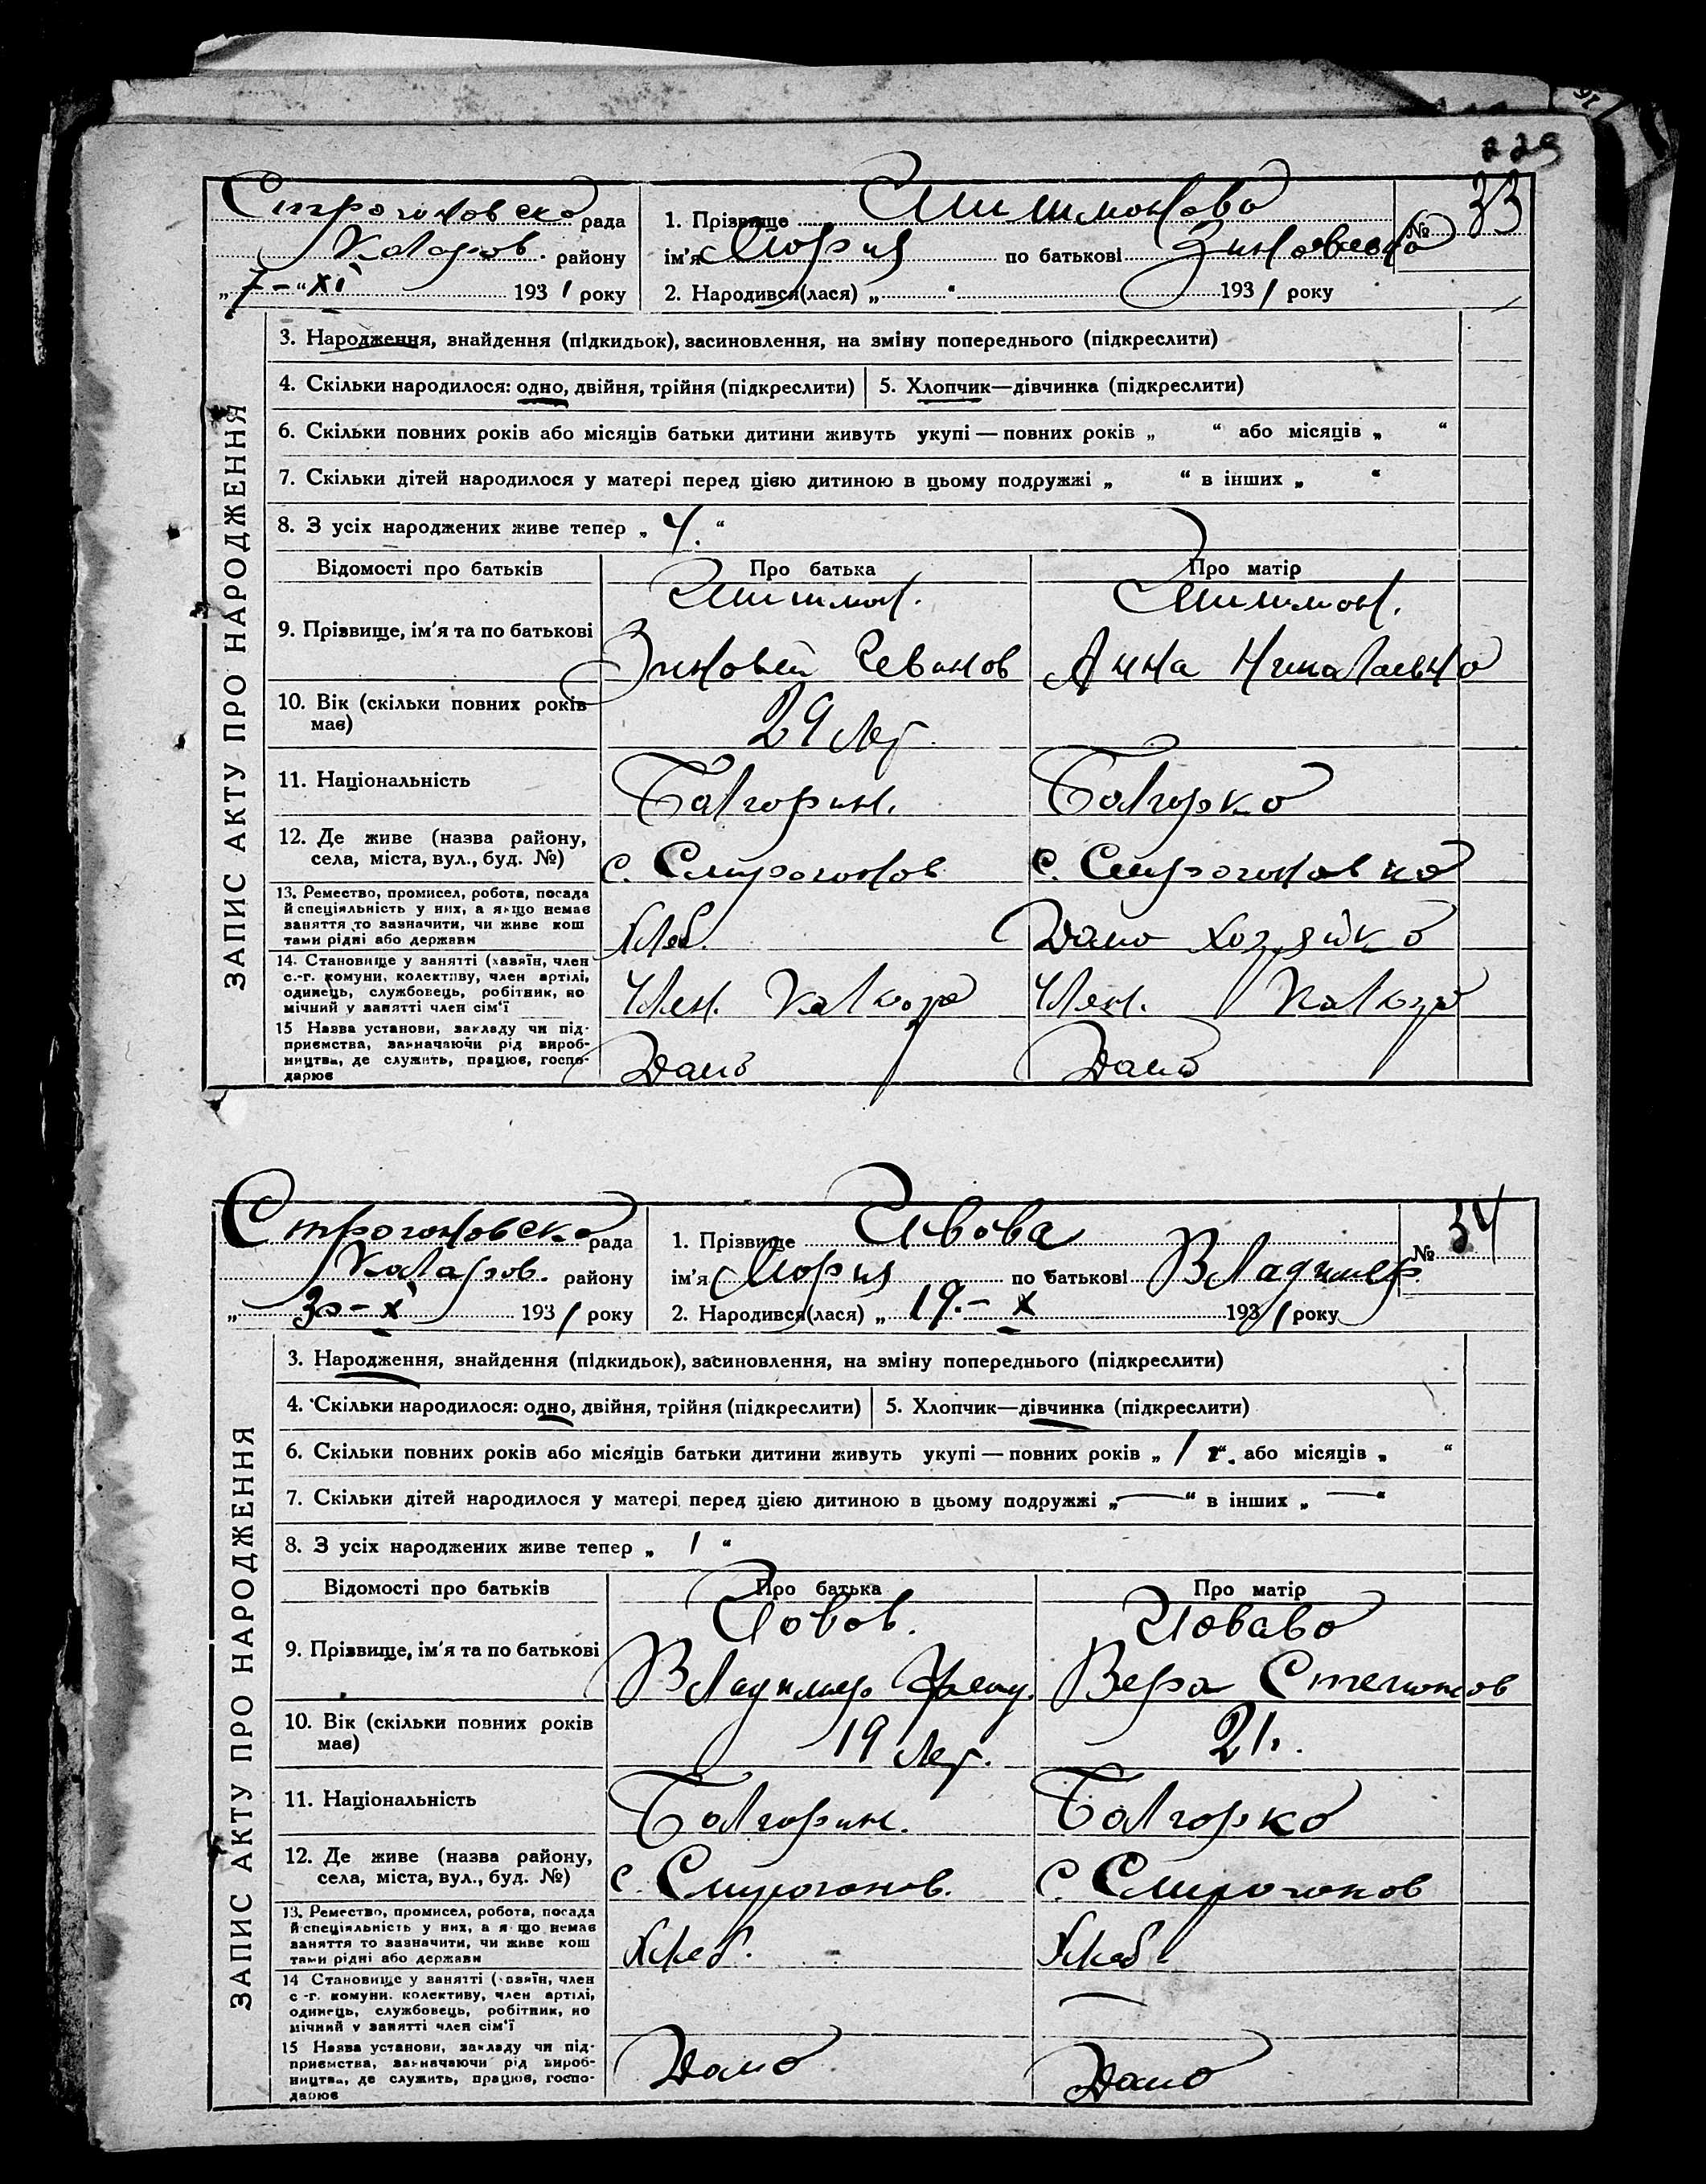 229
Строгоновско рада
Коларов. району
„7-“ XI 1931 року
1. Прізвище Шишмонова
ім'я Мория по батькові Зиновевно
№ 33
2. Народився(лася) „ “ 1931 року
ЗАПИС АКТУ ПРО НАРОДЖЕННЯ
3. Народження, знайдення (підкидьок), засиновлення, на зміну попереднього (підкреслити)
4. Скільки народилося: одно, двійня, трійня (підкреслити) 5. Хлопчик—дівчинка (підкреслити)
6. Скільки повних років або місяців батьки дитини живуть укупі — повних років „ “ або місяців „ “
7. Скільки дітей народилося у матері перед цією дитиною в цьому подружжі „ “ в інших „ “
8. З усіх народжених живе тепер „ 4. “
Відомості про батьків Про батька Про матір
Шишмон. Шишмон.
9. Прізвище, ім'я та по батькові Зиновей Анна Николаевно
10. Вік (скільки повних років
має) 29 лет
11. Національність Болгорин. Болгорко
12. Де живе (назва району,
села, міста, вул., буд. №) с. Строгонов с. Строгоновко
13. Ремество, промисел, робота, посада
й спеціяльність у них, а якщо немає
заняття то зазначити, чи живе кош
тами рідні або держави Хлеб. Домо хозяйко
14. Становище у занятті (хазяїн, член
с.-г. комуни, колективу, член артілі,
одинець, службовець, робітник, по
мічний у занятті член сім'ї Член. Колхоза Член. Колхоза
15 Назва установи, закладу чи під-
приємства, зазначаючи рід вироб-
ництва, де служить, працює, госпо-
дарює Домо Домо
Строгоновско рада
Коларов. району
„ 30-X 1931 року
1. Прізвище Ивова
ім'я Мория по батькові Владимер.
№ 34
2. Народився(лася) „ 19.- X 1931 року
ЗАПИС АКТУ ПРО НАРОДЖЕННЯ
3. Народження, знайдення (підкидьок), засиновлення, на зміну попереднього (підкреслити)
4. Скільки народилося: одно, двійня, трійня (підкреслити) 5. Хлопчик—дівчинка (підкреслити)
6. Скільки повних років або місяців батьки дитини живуть укупі — повних років „ 1 г“. або місяців „ “
7. Скільки дітей народилося у матері перед цією дитиною в цьому подружжі „—“ в інших „ —“
8. З усіх народжених живе тепер „ 1 “
Відомості про батьків Про батька Про матір
Йовов. Йовово
9. Прізвище, ім'я та по батькові Владимер Вера Степонов
10. Вік (скільки повних років
має) 19 лет. 21.
11. Національність Болгорин. Болгорко
12. Де живе (назва району,
села, міста, вул., буд. №) с. Строгонов. с. Строгонов
13. Ремество, промисел, робота, посада
й спеціяльність у них, а якщо немає
заняття то зазначити, чи живе кош
тами рідні або держави Хлеб. Хлеб
14 Становище у занятті (хазяїн, член
с-г. комуни, колективу, член артілі,
одинець, службовець, робітник, по
мічний у занятті член сім'ї —
15 Назва установи, закладу чи під-
приємства, зазначаючи рід вироб-
ництва, де служить, працює, госпо-
дарює Домо Домо